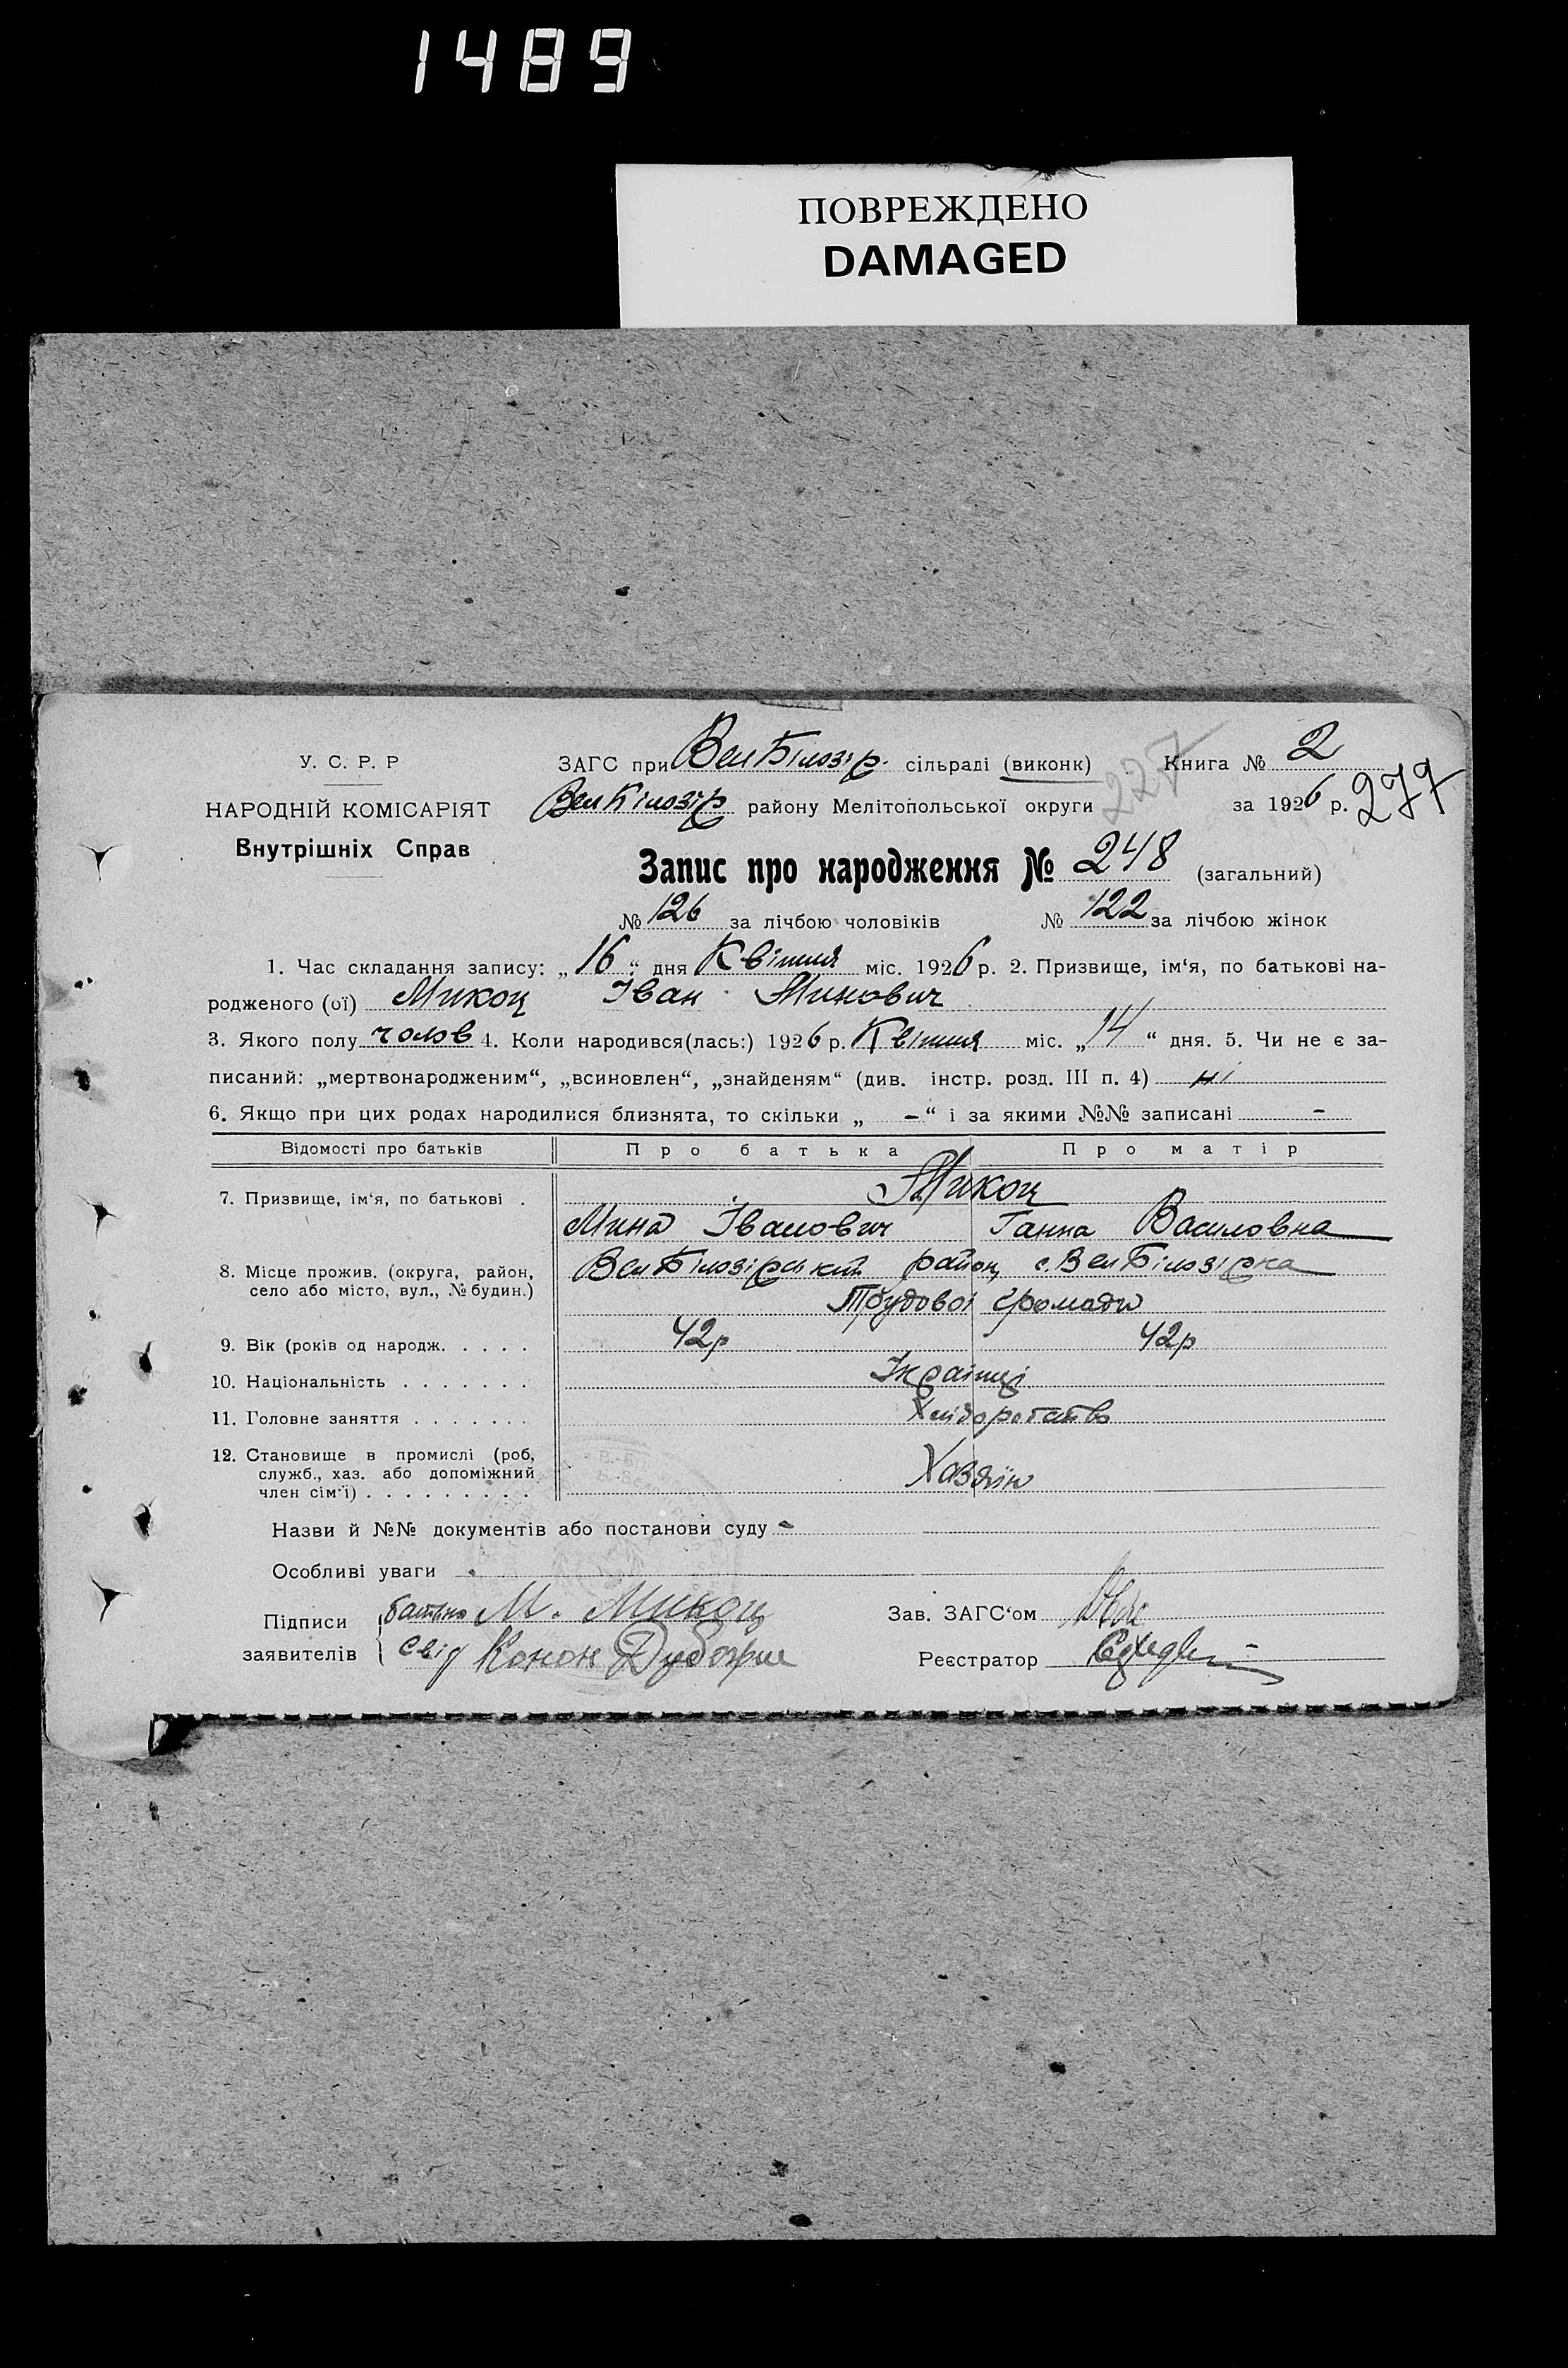 1489
ПОВРЕЖДЕНО
DAMAGED
У. С. Р. Р
НАРОДНІЙ КОМІСАРІЯТ
Внутрішніх Справ
ЗАГС при Вел Білозір. сільраді (виконк) Книга № 2
Вел Білозір району Мелітопольської округи 227 за 1926 р. 277
Запис про народження № 248 (загальний)
№ 126 за лічбою чоловіків № 122 за лічбою жінок
1. Час складання запису: „16“ дня Квітня міс. 1926 р. 2. Призвище, ім‘я, по батькові на-
родженого (ої) Микоц Іван Минович
3. Якого полу чолов 4. Коли народився(лась:) 1926 р. Квітня міс. „14“ дня. 5. Чи не є за-
писаний: „мертвонародженим“, „всиновлен“, „знайденям“ (див. інстр. розд. III п. 4) ні
6. Якщо при цих родах народилися близнята, то скільки „ - “ і за якими №№ записані -
Відомості про батьків Про батька Про матір
7. Призвище, ім‘я, по батькові . Микоц
Мина Іванович Ганна Василовна
8. Місце прожив. (округа, район, село або місто, вул., № будин.) Вел Білозірський район, с. Вел Білозірка
Трудової громади
9. Вік (років од народж. . . . . 42р 42р
10. Національність . . . . . . . Українці
11. Головне заняття . . . . . . . Хліборобство
12. Становище в промислі (роб,
служб., хаз. або допоміжний
член сім‘ї) . . . . . . . . . Хазяїн
Назви й №№ документів або постанови суду -
Особливі уваги
Підписи батько М. Микоц Зав. ЗАГС‘ом
заявителів свід Конон Реєстратор